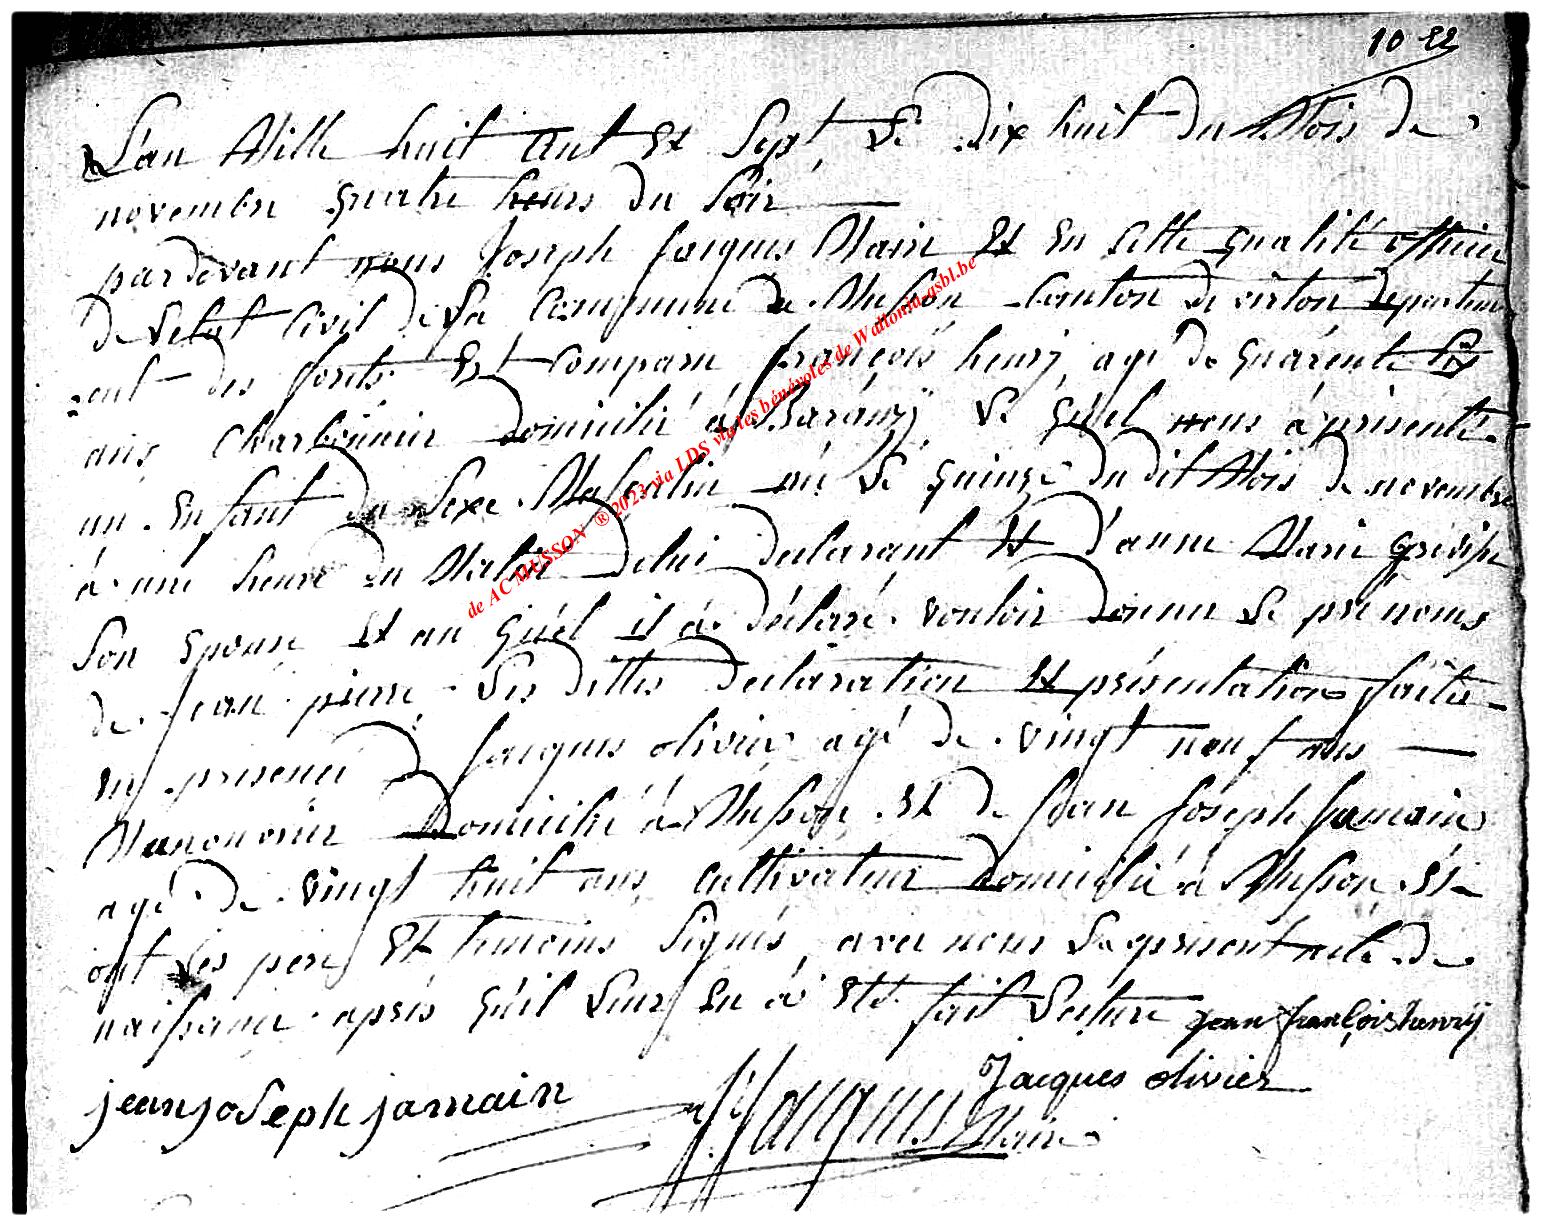 10 22
L'an Mille huit Cent Et Sept, Le dix huit du Mois de
novembre quatre heures du soir
pardevant nous Joseph Jacques Maire Et En Cette qualité officier
de Letat Civil de La Commune de Musson Canton de virton departem
ent des forets Est Comparu françois henry agé de quarente six
ans Charbonnier domicilié à Baranzÿ Le quel nous à présenté
un Enfant du Sexe Masculin né Le quinze du dit Mois de novembre
à une heure du Matin de lui declarant Et d'anne Marie
Son Epouse Et au quel il à déclaré vouloir donner Le prénoms
de Jean pierre Les dittes declaration Et présentation faite
En presence de Jacques olivier agé de vingt neuf ans
Manouvrier domicilié à Musson Et de Jean Joséph Jamain
agé de vingt huit ans, Cultivateur domicilié à Musson, Et
ont Les pere Et temoins Signés, avec nous Le present acte de
naissance après qu'il Leur En à Eté fait Lecture jean françois henrÿ
jean joseph jamain
Jacques olivier
JJacques Maire
de AC MUSSON ® 2023 via LDS via les bénévoles de Wallonia-asbl.be